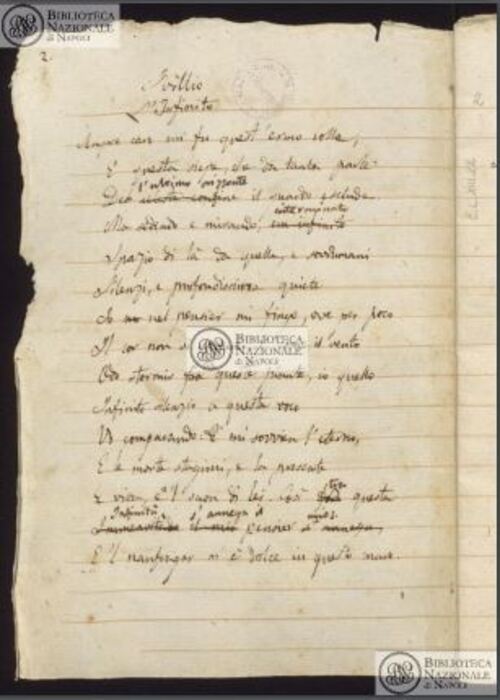 BIBLIOTECA
NAZIONALE
di NAPOLI
2.
Idillio
L'Infinito
Sempre caro mi fu quest'ermo colle,
E questa siepe, che da tanta parte
l'ultimo orizzonte
De confine il guardo esclude.
interminato
Ma sedendo e mirando, un infinito
Spazio di là da quella, e sovrumani
Silenzi, e profondissima quiete
Io nel pensier mi fingo, ove per poco
Il cor non il vento
BIBLIOTECA
NAZIONALE
di NAPOLI
Odo stormir fra queste piante, io quello
Infinito silenzio a questa voce
Vo comparando. E mi sovvien l'eterno,
E le morte stagioni, e la presente
E viva, e 'l suon di lei. Così tra questa
Infinità s'annega il mio
Immensità il mio pensier s'annega,
E 'l naufragar m'è dolce in questo mare.
BIBLIOTECA
NAZIONALE
di NAPOLI